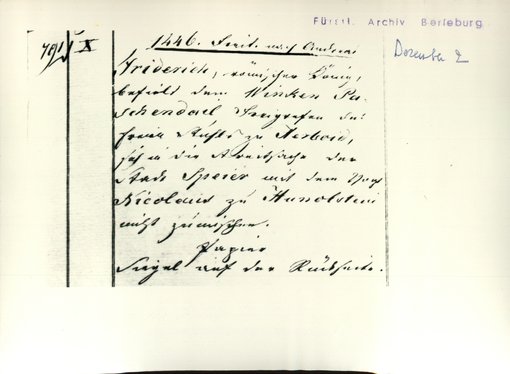 Fürstl. Archiv Berleburg
X
1446. Freit. nach Andreai
Friderich, römischer König,
befielt dem Winken Pa-
schendail Freigrafen des
freien Stuhls zu
sich in die Streitsache der
Stadt Speier mit dem
Nicolaus zu Hunolstein
nicht zu mischen.
Papier
Siegel auf der Rückseite.